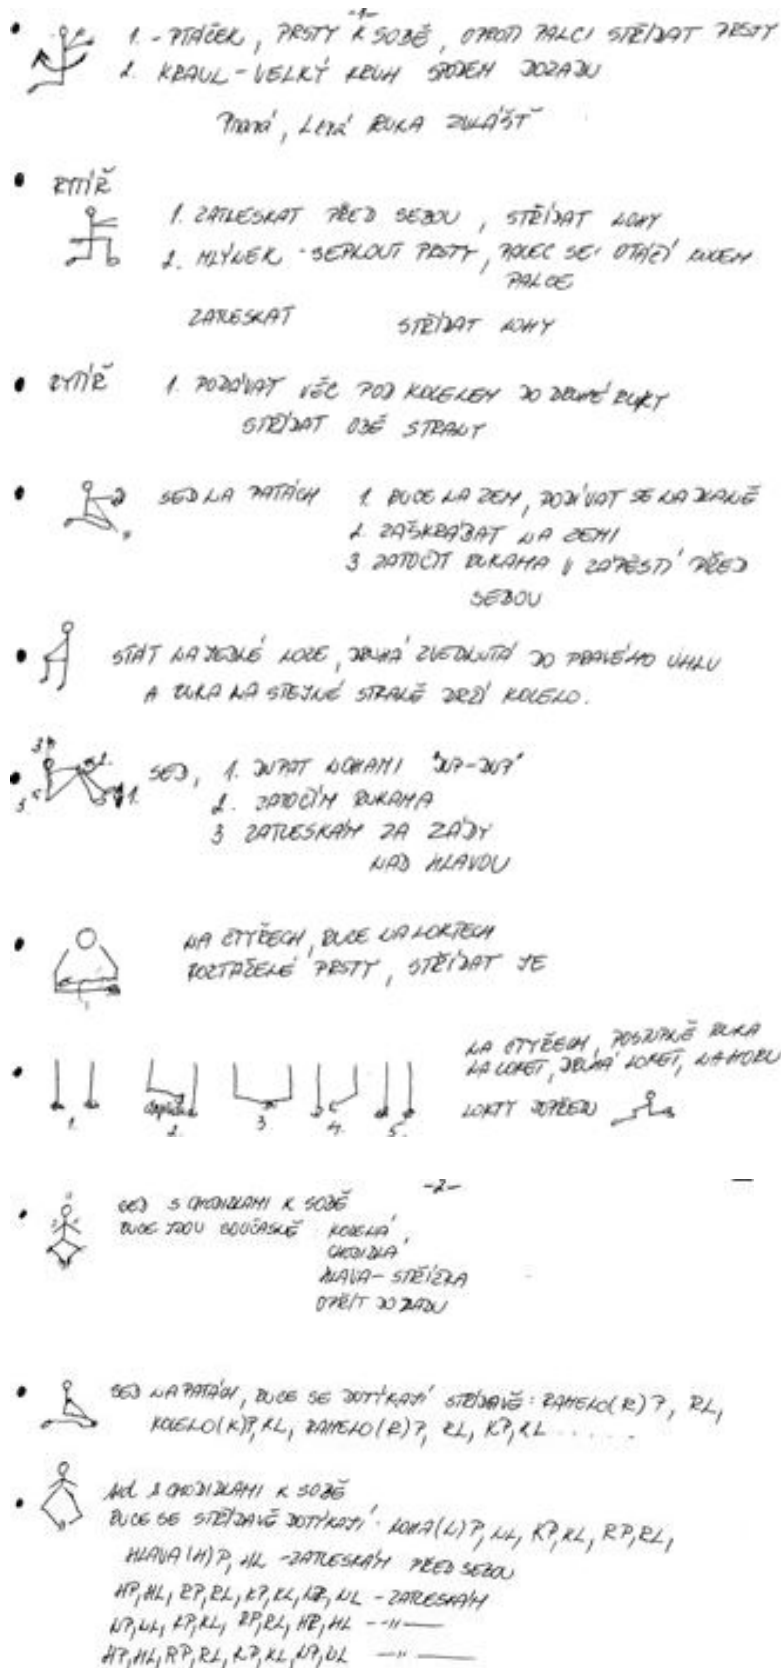 -1-
1. - PTÁČEK, PRSTY K SOBĚ, OPROTI PALCI STŘÍDAT PRSTY
2. KRAUL - VELKÝ KRUH SPODEM DOZADU
Pravá, Levá RUKA ZVLÁŠŤ
RYTÍŘ
1. ZATLESKAT PŘED SEBOU, STŘÍDAT NOHY
2. MLÝNEK - SEPNOUT PRSTY, PALEC SE OTÁČÍ KOLEM
PALCE
ZATLESKAT STŘÍDAT NOHY
RYTÍŘ 1. PODÁVAT VĚC POD KOLENEM DO DRUHÉ RUKY
STŘÍDAT OBĚ STRANY
SED NA PATÁCH 1. RUCE NA ZEM, PODÍVAT SE NA DLANĚ
2. ZAŠKRÁBAT NA ZEMI
3 ZATOČIT RUKAMA V ZÁPĚSTÍ PŘED
SEBOU
STÁT NA JEDNÉ NOZE, DRUHÁ ZVEDNUTÁ DO PRAVÉHO ÚHLU
A RUKA NA STEJNÉ STRANĚ DRŽÍ KOLENO.
3 2. 3. 1. SED, 1. DUPAT NOHAMI "DUP-DUP"
2. ZATOČÍM RUKAMA
3 ZATLESKÁM ZA ZÁDY
NAD HLAVOU
NA ČTYŘECH, RUCE NA LOKTECH
ROZTAŽENÉ PRSTY, STŘÍDAT JE
NA ČTYŘECH, POSTUPNĚ RUKA
NA LOKET, DRUHÁ LOKET, NAHORU
LOKTY DOPŘEDU
1. 2. 3 4. 5.
-2-
SED S CHODIDLAMI K SOBĚ
RUCE JDOU SOUČASNĚ KOLENA,
CHODIDLA,
HLAVA - STŘÍŠKA
OPŘÍT DOZADU
SED NA PATÁCH, RUCE SE DOTÝKAJÍ STŘÍDAVĚ: RAMENO(R)P, RL,
KOLENO(K)P, KL, RAMENO(R)P, RL, KP, KL .....
Sed S CHODIDLAMI K SOBĚ
RUCE SE STŘÍDAVĚ DOTÝKAJÍ - NOHA(N)P, NL, KP, KL, RP, RL,
HLAVA(H)P, HL - ZATLESKÁM PŘED SEBOU
HP, HL, RP, RL, KP, KL, NP, NL - ZATLESKÁM
NP, NL, KP, KL, RP, RL, HP, HL --"—
HP, HL, RP, RL, KP, KL, NP, NL —"—